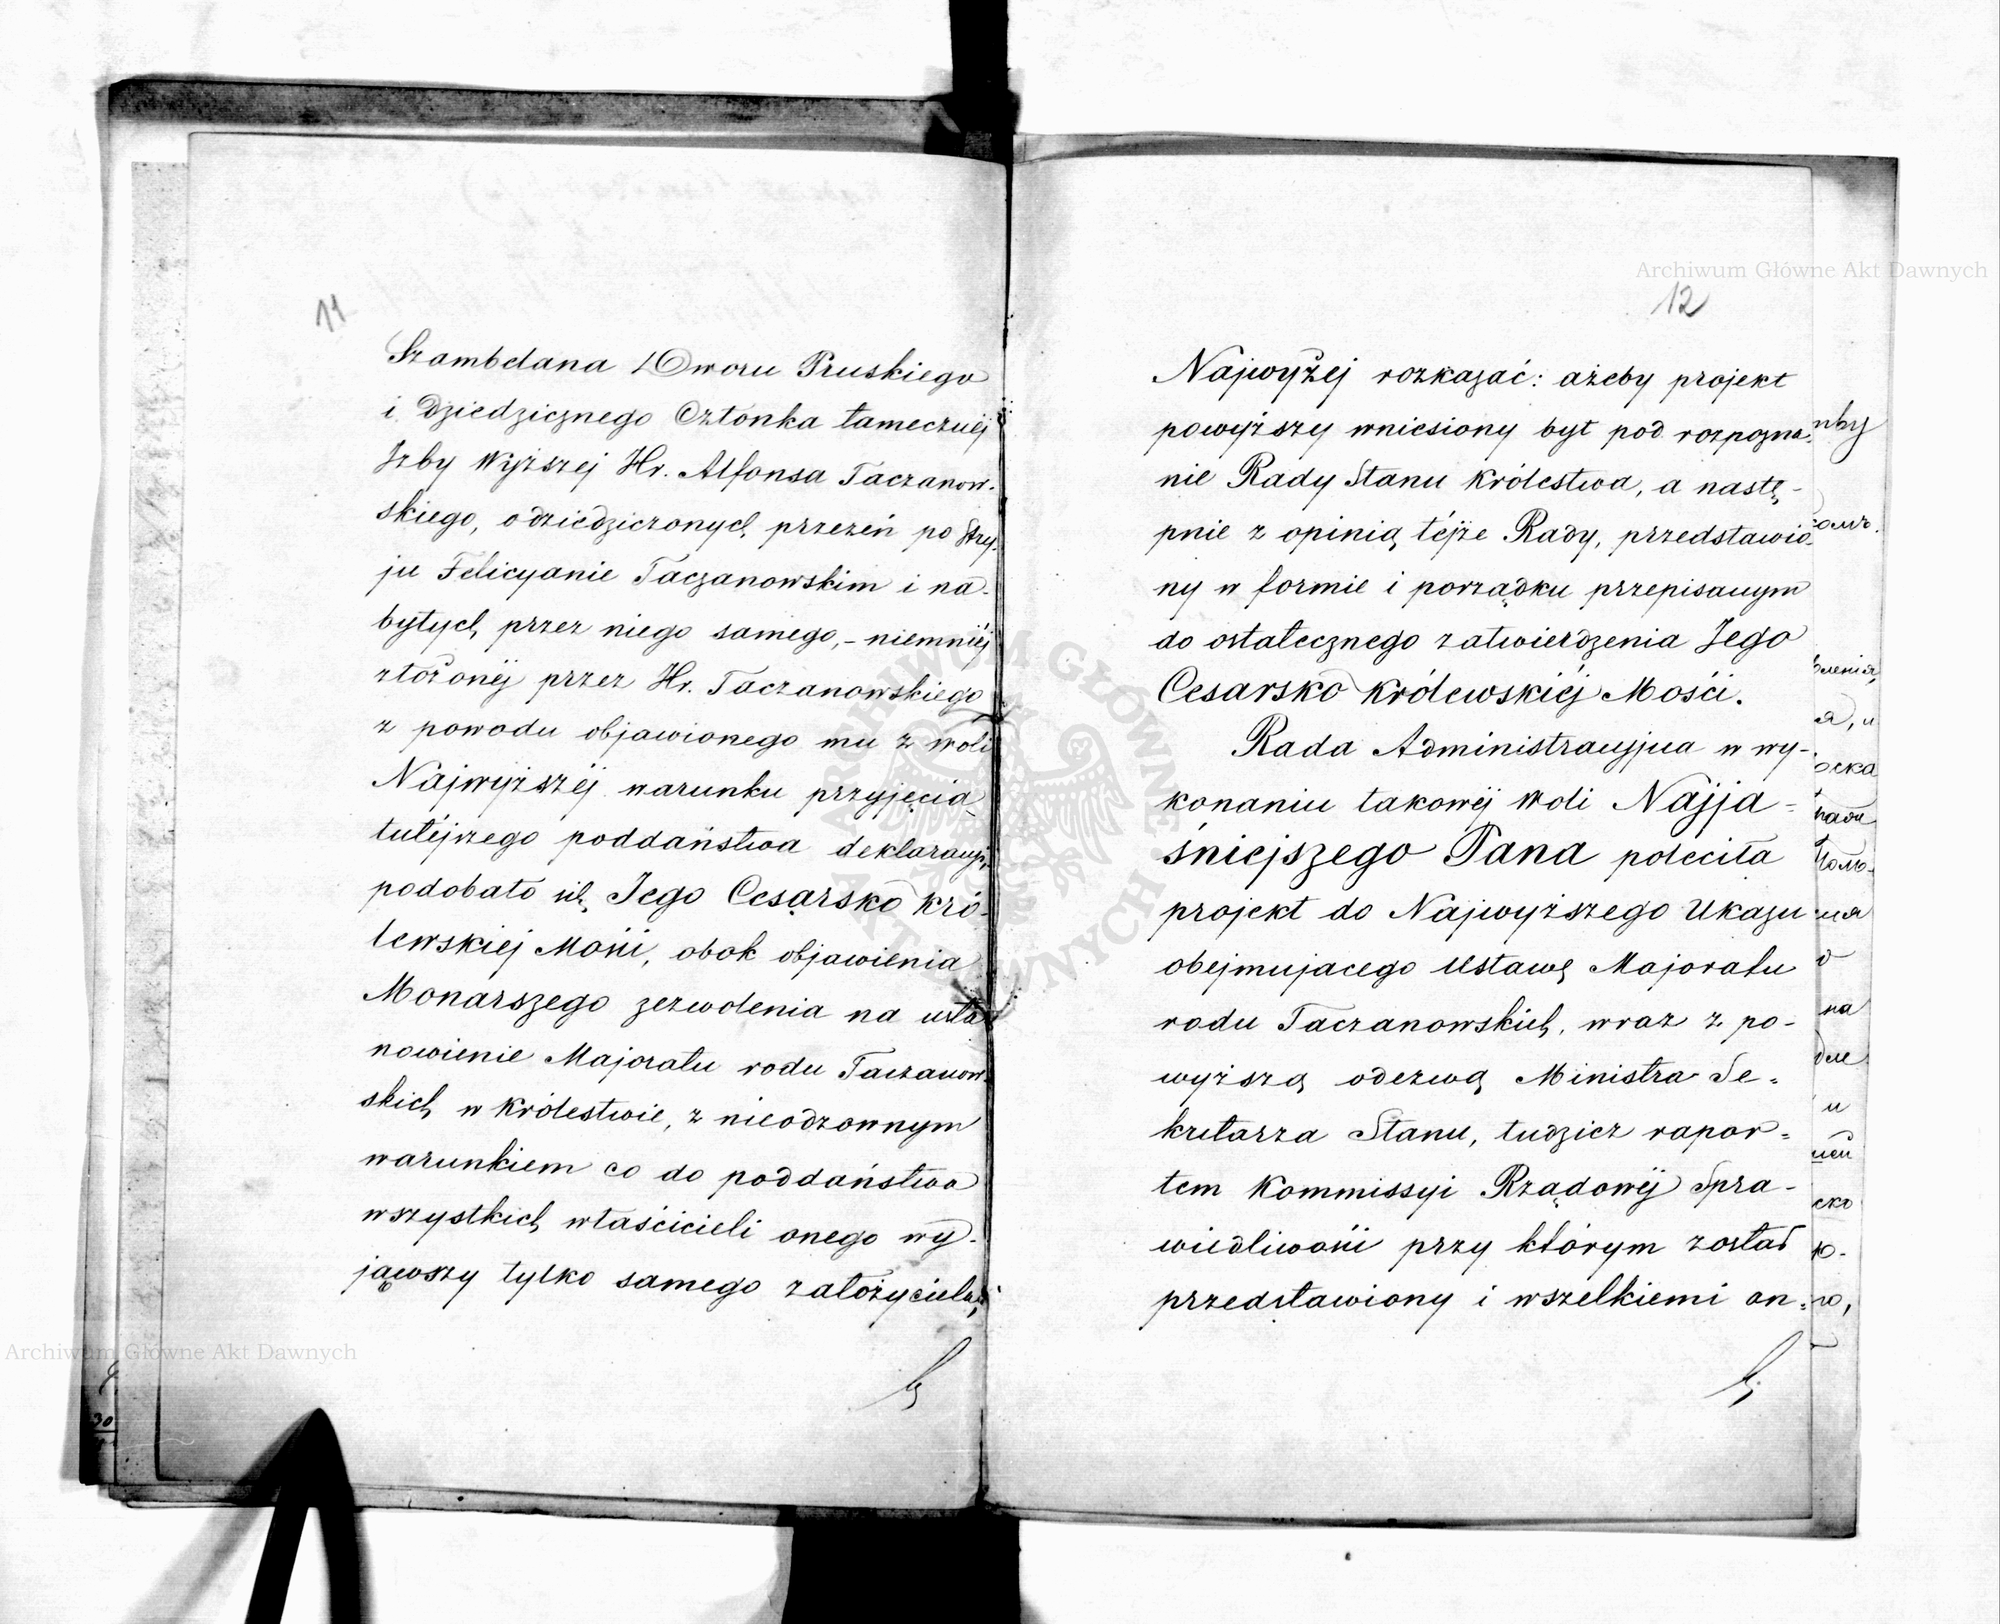 11
Szambelana Dworu Pruskiego
i Dziedzicznego Członka tamecznéj
Izby Wyższej Hr. Alfonsa Taczanow-
skiego, odziedziczonych przezeń po Stry-
ju Felicyanie Taczanowskim i na-
bytych przez niego samego, - niemniéj
złożonéj przez Hr. Taczanowskiego
z powodu objawionego mu z woli
Najwyższéj warunku przyjęcia
tutéjszego poddaństwa deklaracyi,
podobało się Jego Cesarsko Kró-
lewskiej Mości, obok objawienia
Monarszego zezwolenia na usta-
nowienie Majoratu rodu Taczanow-
skich w Królestwie, z nieodzownym
warunkiem co do poddaństwa
wszystkich właścicieli onego wy-
jąwszy tylko samego założyciela,
Archiwum Główne Akt Dawnych
Archiwum Główne Akt Dawnych
12
Najwyżej rozkazać: ażeby projekt
powyższy wniesiony był pod rozpozna-
nie Rady Stanu Królestwa, a nastę-
pnie z opinią téjże Rady, przedstawio-
ny w formie i porządku przepisanym
do ostatecznego zatwierdzenia Jego
Cesarsko Królewskiéj Mości.
Rada Administracyjna w wy-
konaniu takowéj woli Najja-
śniejszego Pana poleciła
projekt do Najwyższego Ukazu
obejmującego Ustawę Majoratu
rodu Taczanowskich, wraz z po-
wyższą odezwą Ministra Se-
kretarza Stanu, tudzież rapor-
tem Kommissyi Rządowéj Spra-
wiedliwości przy którym został
przedstawiony i wszelkiemi an-
ARCHIWUM GŁÓWNE AKT DAWNYCH